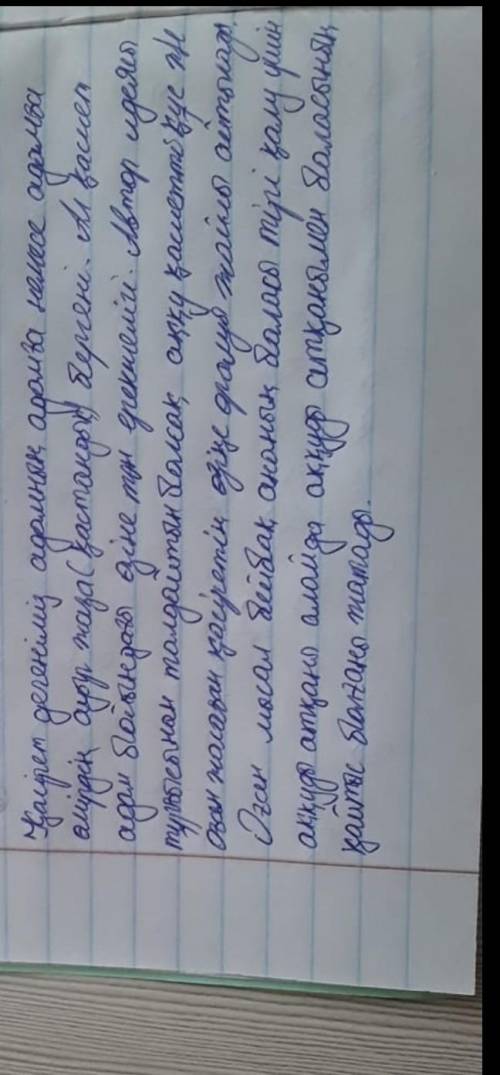 Қасірет дегеніміз адамның адамға немесе адамға
өмірдің ауыр жаза (қастандық) бергені. Ал қасиет
адам бойындағы өзіне тән ерекшелігі. Автор идеясы
тұрғысынан талдайтын болсақ, аққу қасиетті құс және
оған жасаған қасіретің өзіңе оралуы жайлы айтылады.
Оған мысал бейбақ ананың баласы тірі қалу үшін
аққуды атқаны алайда аққуды атқанымен баласының
қайтыс болғаны жатады.